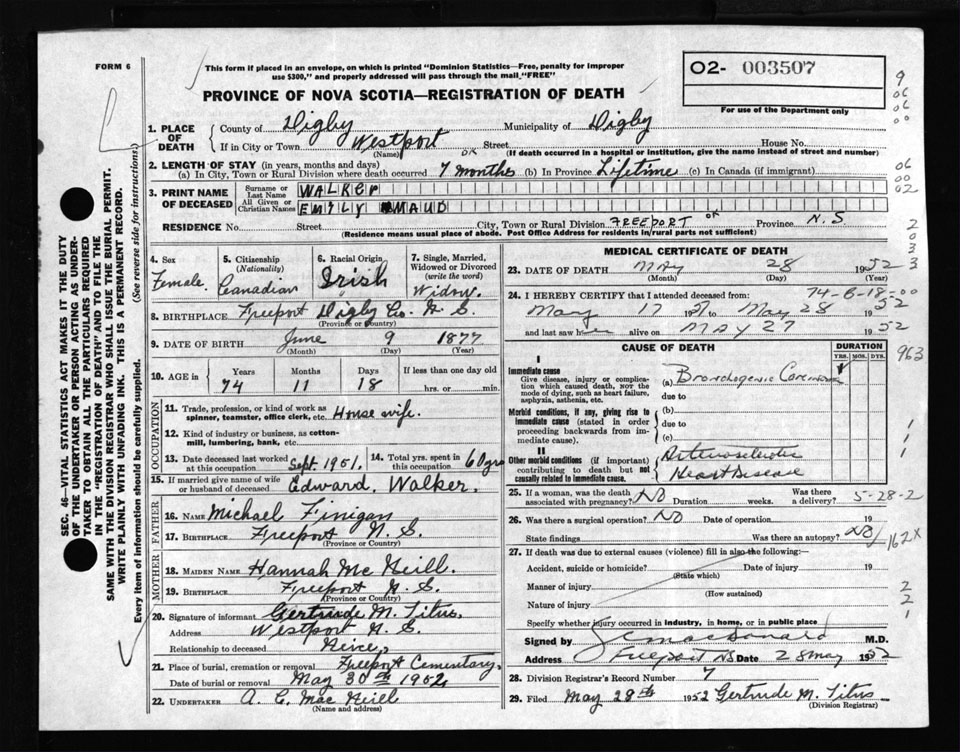 FORM 6
This form if placed in an envelope, on which is printed "Dominion Statistics—Free, penalty for improper
use $300," and properly addressed will pass through the mail "FREE"
PROVINCE OF NOVA SCOTIA—REGISTRATION OF DEATH
O2- 003507
For use of the Department only
1. PLACE OF DEATH
County of Digby Municipality of Digby
If in City or Town Westport Street House No.
(Name) (If death occurred in a hospital or institution, give the name instead of street and number)
2. LENGTH OF STAY (in years, months and days)
(a) In City, Town or Rural Division where death occurred 7 months (b) In Province Lifetime (c) In Canada (if immigrant)
3. PRINT NAME OF DECEASED
Surname or Last Name WALKER
All Given or Christian Names EMILY MAUD
RESIDENCE No. Street City, Town or Rural Division FREEPORT Province N.S
(Residence means usual place of abode. Post Office Address for residents in rural parts not sufficient)
4. Sex Female
5. Citizenship (Nationality) Canadian
6. Racial Origin Irish
7. Single, Married, Widowed or Divorced (write the word) Widow.
8. BIRTHPLACE Freeport Digby Co. N. S.
(Province or Country)
9. DATE OF BIRTH June 9 1877
(Month) (Day) (Year)
10. AGE in Years Months Days If less than one day old
74 11 18 hrs. or min.
OCCUPATION
11. Trade, profession, or kind of work as
spinner, teamster, office clerk, etc. House wife.
12. Kind of industry or business, as cotton-
mill, lumbering, bank, etc.
13. Date deceased last worked at this occupation Sept. 1951. 14. Total yrs. spent in this occupation 60 yrs
15. If married give name of wife or husband of deceased Edward Walker.
FATHER
16. NAME Michael Finigan
17. BIRTHPLACE Freeport N. S.
(Province or Country)
MOTHER
18. MAIDEN NAME Hannah McNeill.
19. BIRTHPLACE Freeport N. S.
(Province or Country)
20. Signature of informant Gertrude M. Titus,
Address Westport N. S.
Relationship to deceased Neice,
21. Place of burial, cremation or removal Freeport Cementary,
Date of burial or removal May 30th 1952,
22. UNDERTAKER A. C. MacNeill
(Name and address)
MEDICAL CERTIFICATE OF DEATH
23. DATE OF DEATH MAY 28 1952
(Month) (Day) (Year)
74-6-18-00
24. I HEREBY CERTIFY that I attended deceased from:
May 17 to May 28 1952
and last saw her alive on MAY 27 1952
CAUSE OF DEATH
DURATION
YRS. MOS. DYS.
I
Immediate cause
Give disease, injury or complica-
tion which caused death, NOT the
mode of dying, such as heart failure,
asphyxia, asthenia, etc.
(a) Bronchogenic Carcinoma
due to
Morbid conditions, if any, giving rise to
immediate cause (stated in order
proceeding backwards from im-
mediate cause).
(b)
due to
(c)
II
Other morbid conditions (if important)
contributing to death but not
causally related to immediate cause.
Arteriosclerotic
Heart Disease
25. If a woman, was the death associated with pregnancy? NO Duration weeks. Was there a delivery? 5-28-2
26. Was there a surgical operation? NO Date of operation 19
State findings Was there an autopsy? NO
162X
27. If death was due to external causes (violence) fill in also the following:—
Accident, suicide or homicide? Date of injury 19
(State which)
Manner of injury
(How sustained)
Nature of injury
Specify whether injury occurred in industry, in home, or in public place
Signed by M.D.
Address Freeport NS Date 28 May 1952
28. Division Registrar's Record Number 7
29. Filed May 28th 1952 Gertrude M. Titus
(Division Registrar)
SEC. 46—VITAL STATISTICS ACT MAKES IT THE DUTY
OF THE UNDERTAKER OR PERSON ACTING AS UNDER-
TAKER TO OBTAIN ALL THE PARTICULARS REQUIRED
IN THE "REGISTRATION OF DEATH" AND TO FILE THE
SAME WITH THE DIVISION REGISTRAR WHO SHALL ISSUE THE BURIAL PERMIT.
WRITE PLAINLY WITH UNFADING INK. THIS IS A PERMANENT RECORD.
Every item of information should be carefully supplied. (See reverse side for instructions.)
9
06
06
00
06
00
02
2
0
3
3
963
1
1
1
2
2
1